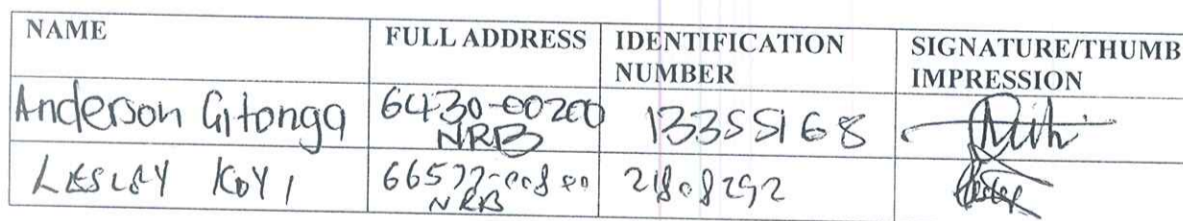 NAME FULL ADDRESS IDENTIFICATION NUMBER SIGNATURE/THUMB IMPRESSION
Anderson Gitonga 6430-00200 NRB 13355168
LESLEY KOYI 66577-00800 NRB 21808292